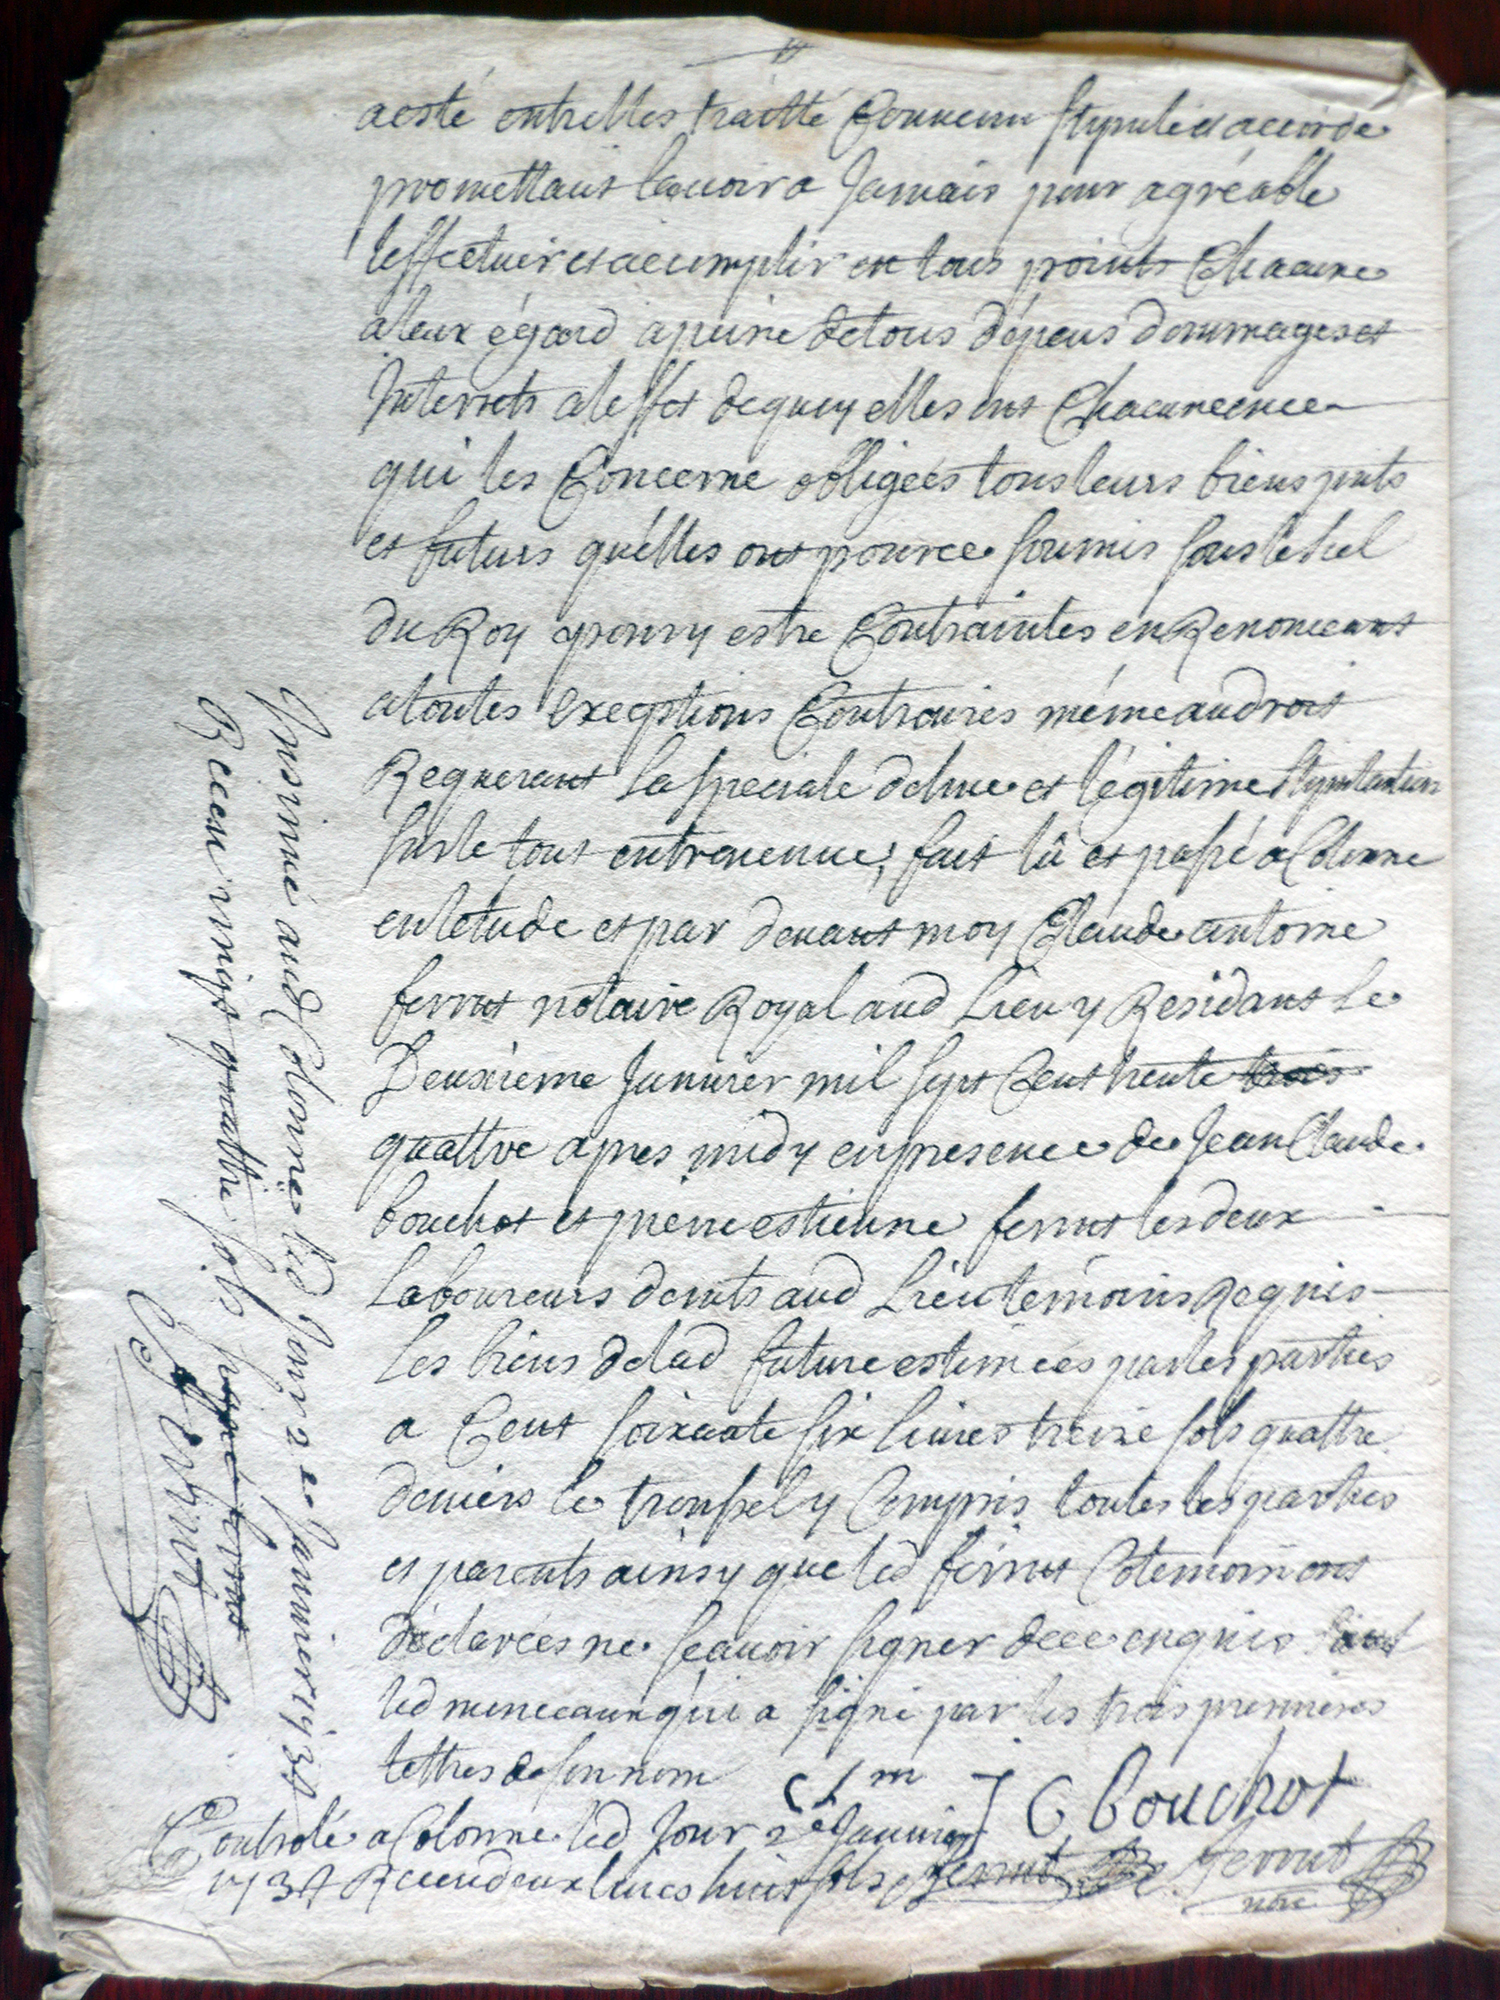 a esté entrelles traitté Convenu stipulé et accordé
promettant lavoir a Jamais pour agréable
leffectuer et accomplir en tous points Chacune
a leur égard a peine de tous dépens dommages et
Interests a leffet de quoy elles ont Chacune en ce
qui les Concerne obligées tous leurs biens pnts
et futurs quélles ont pour ce soumis sous le scel
du Roy pour y estre Contraintes en Renonceant
a toutes exceptions Contraires méme au droit
Requerant la speciale dehue et légitime stipulation
sur le tout entrevenue; fait lû et passé a Colonne
en létude et par devant moy Claude antoine
ferrut notaire Royal aud Lieu y Residant le
Deuxieme Janvier mil sept Cent trente trois
quattre apres midy en presence de Jean Claude
bouchot et pierre estienne ferrut les deux
Laboureurs demts aud Lieu temoins Requis
Les biens de lad future estimées par les parties
a Cent soixante six livres treize sols quattre
deniers le troussel y Compris toutes les parties
et parents ainsy que led ferrut Cotemoin ont
déclarées ne scavoir signer de ce enquis
led qui a signé par les trois premieres
lettres de son nom
C L m J C bouchot
Controlé a Colonne led Jour 2e Janvier
1734 Receu deux livres huit sols ferrut C. A. ferrut
nore
Insinué aud Colonne led Jour 2e Janvier 1734
Receu vingt quattre sols signé ferrut